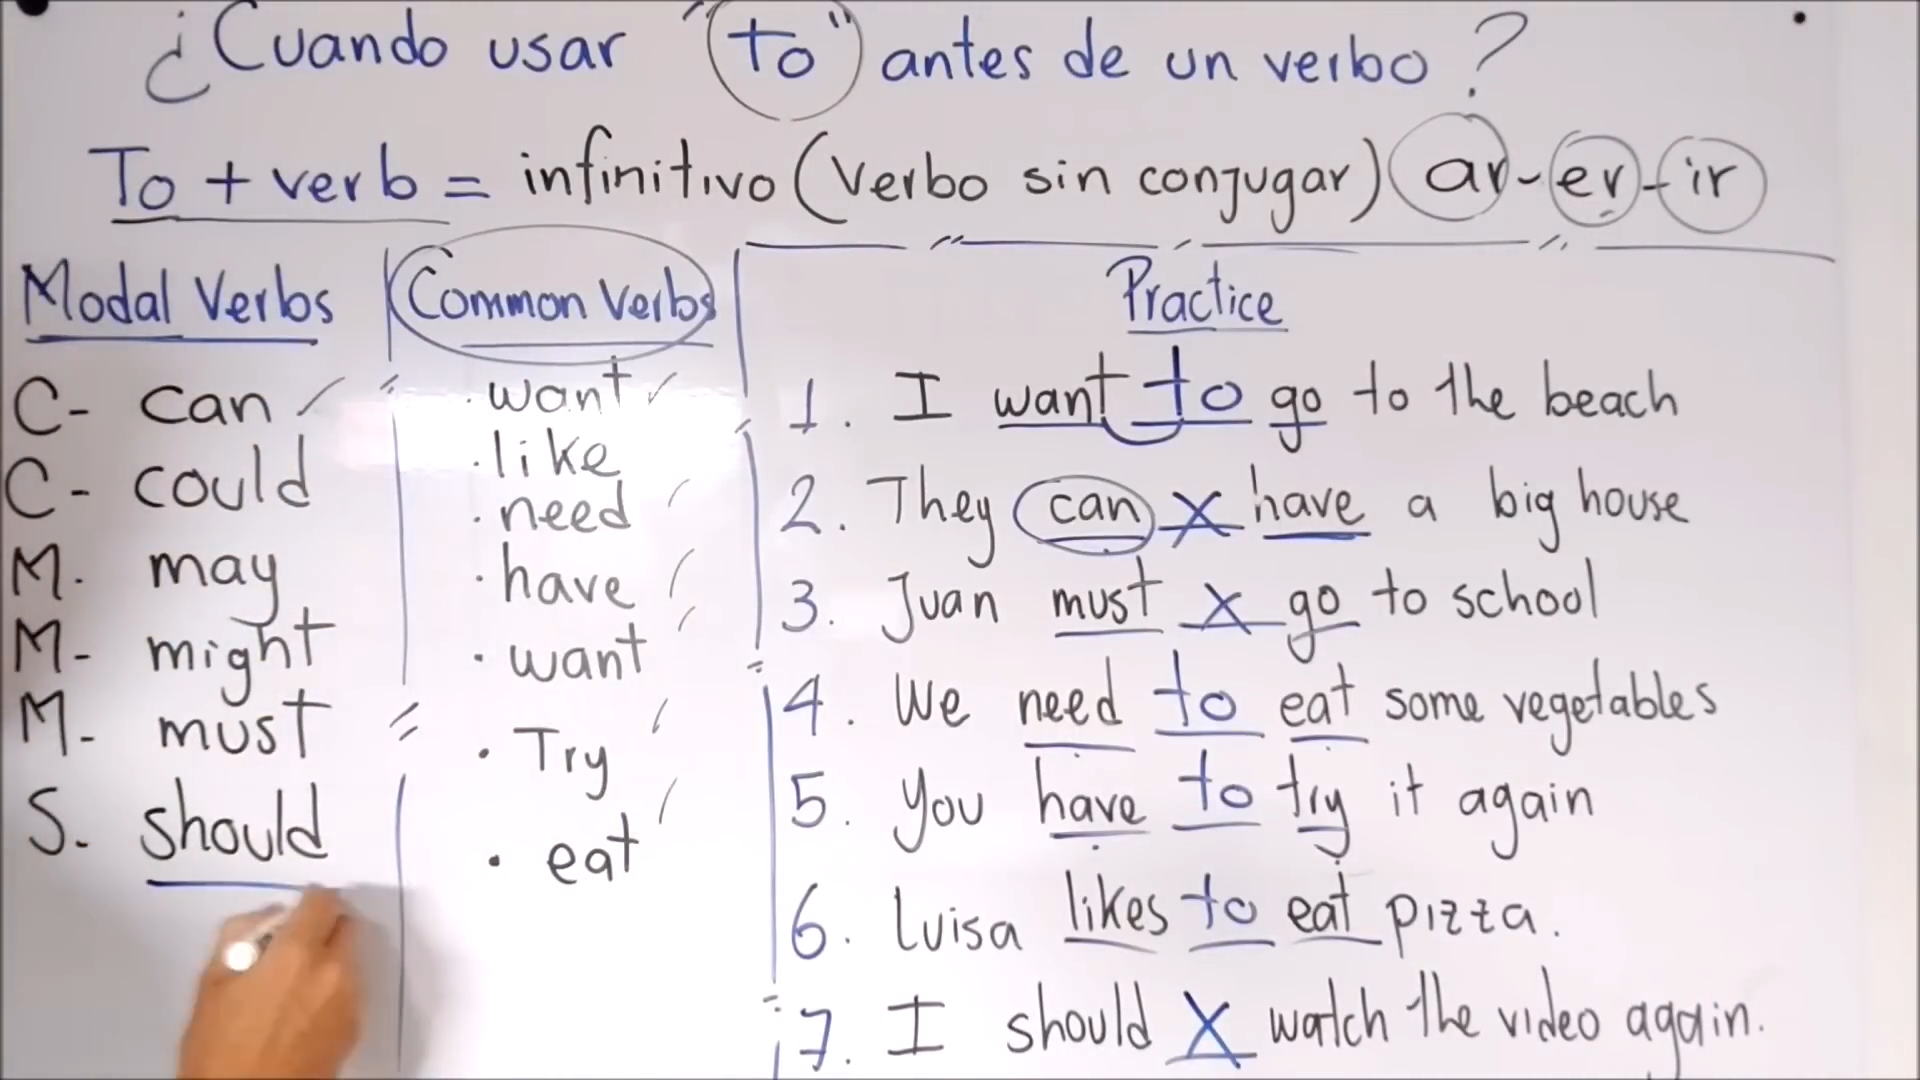 ¿Cuando usar "to" antes de un verbo?
To + verb = infinitivo (Verbo sin conjugar) ar - er - ir
Modal Verbs
C- can
C- could
M. may
M- might
M- must
S. should
Common Verbs
· want
· like
· need
· have
· want
· Try
· eat
Practice
1. I want to go to the beach
2. They can X have a big house
3. Juan must X go to school
4. We need to eat some vegetables
5. You have to try it again
6. Luisa likes to eat pizza.
7. I should X watch the video again.